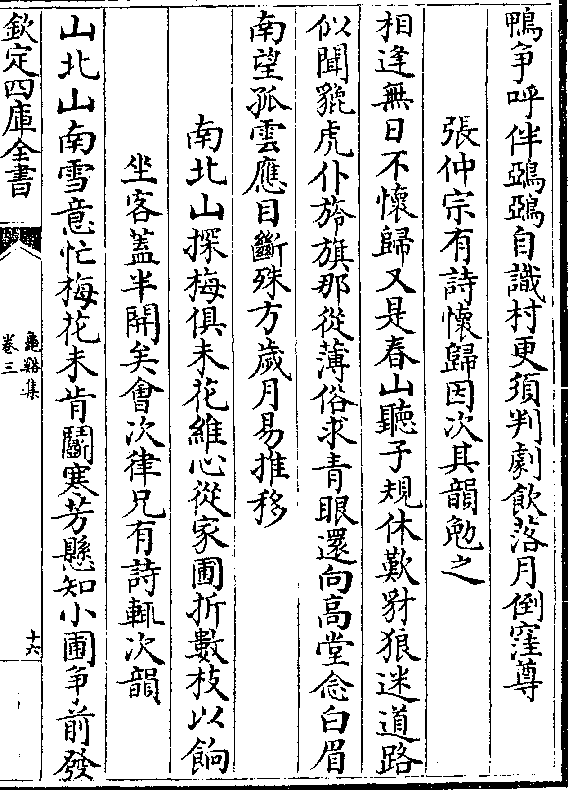 鴨争呼伴鵶鵶自識村更須判劇飲落月倒窪尊
張仲宗有詩懷歸因次其韻勉之
相逢無日不懷歸又是春山聽子規休歎豺狼迷道路
似聞貔虎仆旍旗那從薄俗求青眼還向高堂念白眉
南望孤雲應目斷殊方嵗月易推移
南北山探梅俱未花維心從家圃折數枝以餉
坐客蓋半開矣會次律兄有詩輒次韻
山北山南雪意忙梅花未肯鬭寒芳懸知小圃争前發
欽定四庫全書
龜谿集
卷三
十六